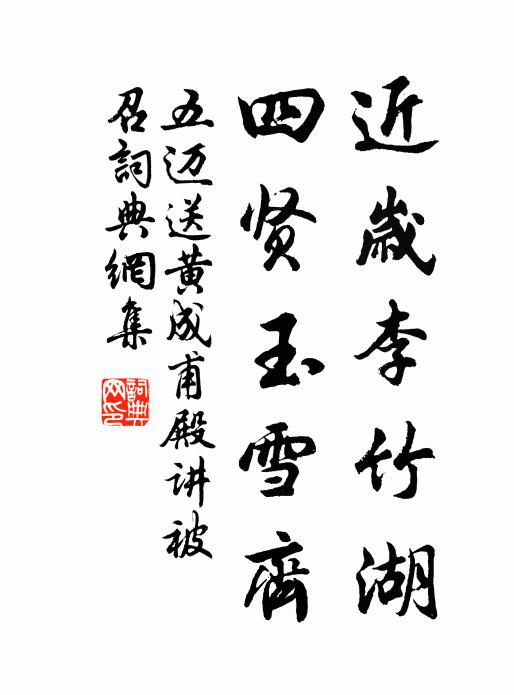 近歲李竹湖
四贤玉雪齊
五迈送黄成甫殿讲被
召詞典網集
詞典網印